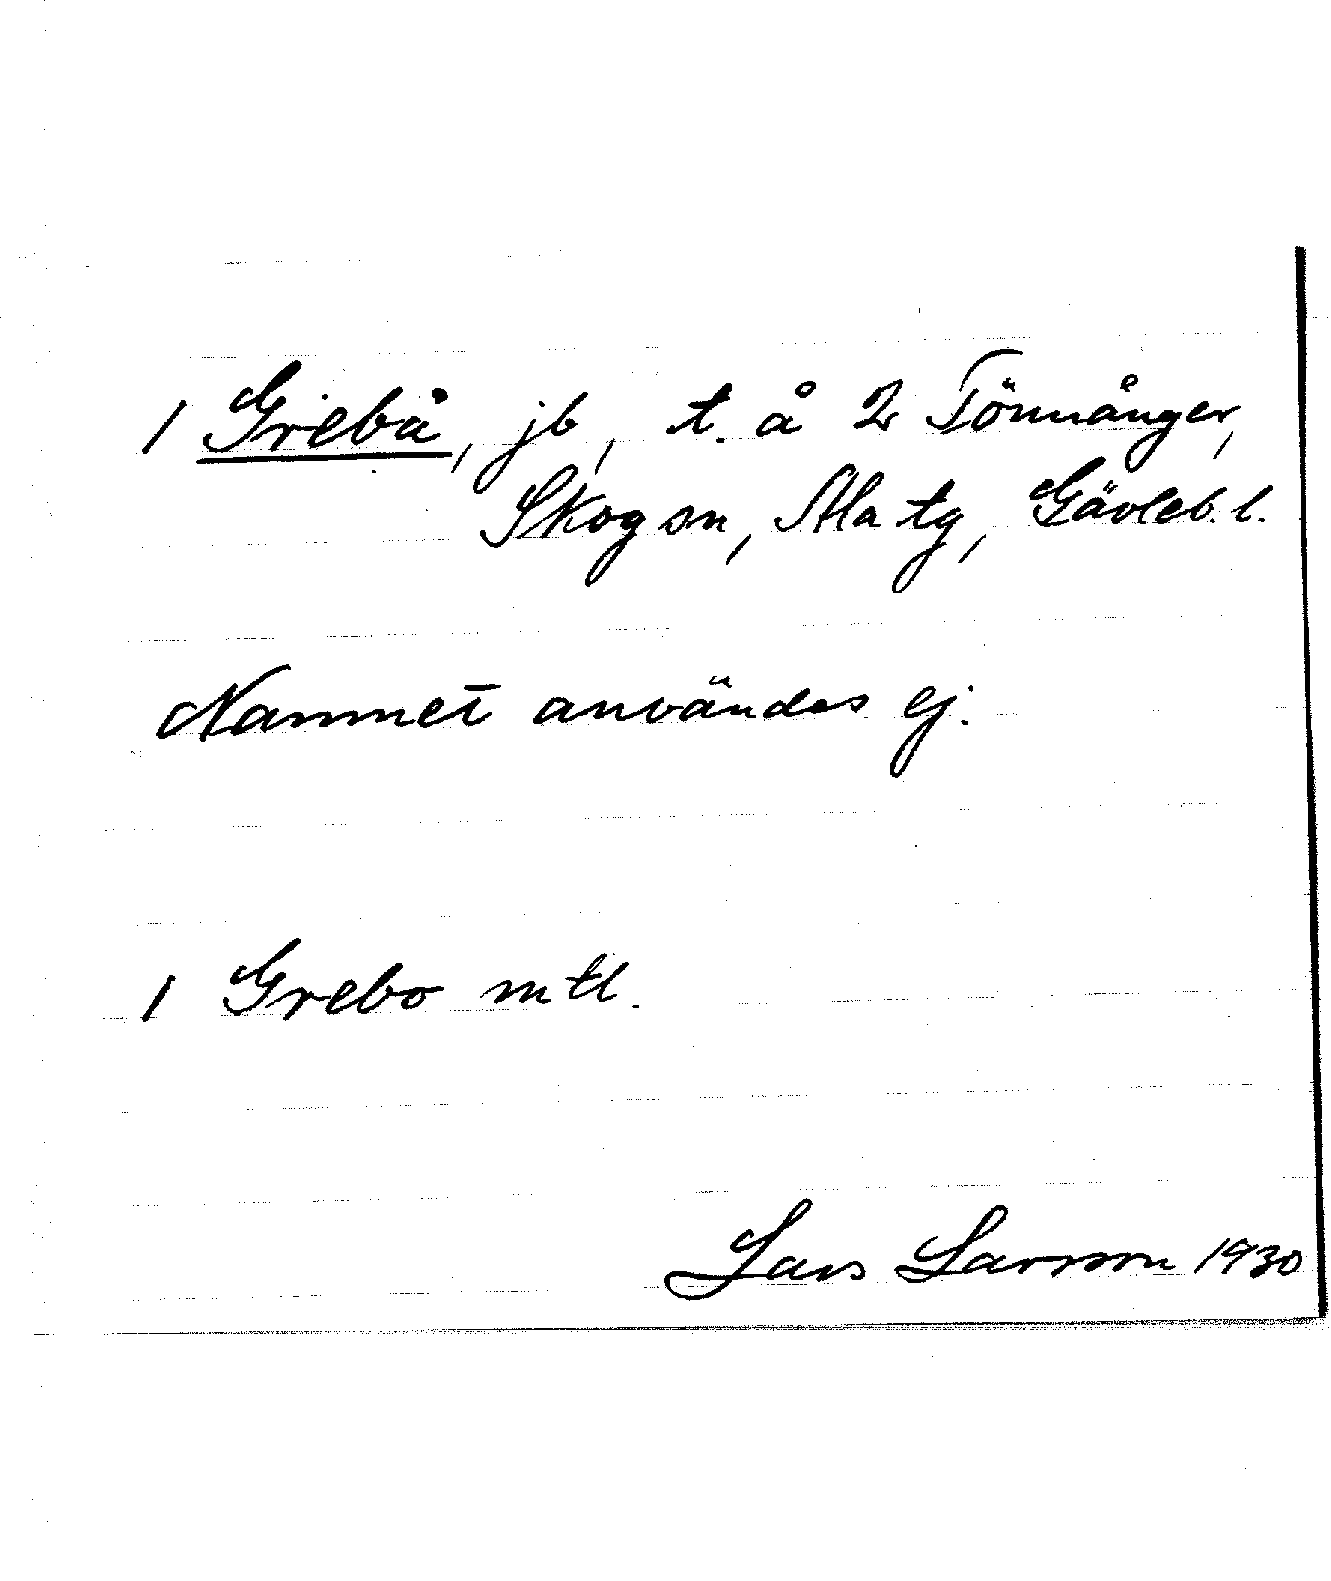 1 Grebå, jb, t. å 2 Tönnånger,
Skog sn, Ala tg, Gävleb. l.
Namnet användes ej.
1 Grebo mtl.
Lars Larsson 1930